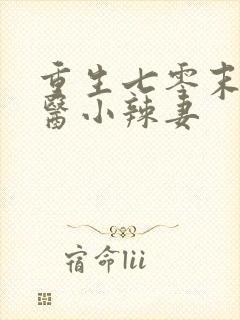 重生七零末
醫小辣妻
宿命lii